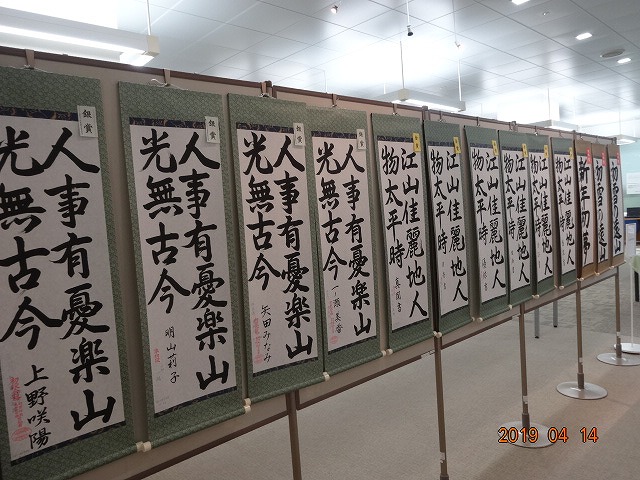 銀賞
人事有憂楽山
光無古今
上野咲陽
銀賞
人事有憂楽山
光無古今
明山莉子
銀賞
人事有憂楽山
光無古今
矢田みなみ
銀賞
人事有憂楽山
光無古今
江山佳麗地人
物太平時
江山佳麗地人
物太平時
江山佳麗地人
物太平時
江山佳麗地人
物太平時
江山佳麗地人
物太平時
江山佳麗地人
物太平時
新年初夢
初雪の遠山
初雪の遠山
2019 04 14